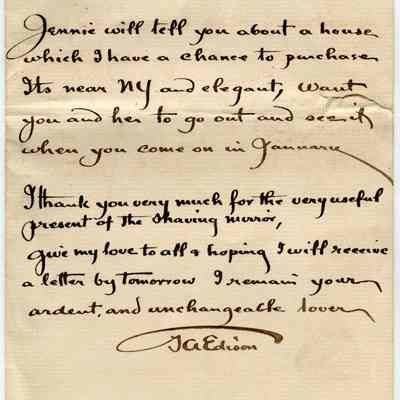 Jennie will tell you about a house
which I have a chance to purchase
Its near NY and elegant, want
you and her to go out and see it
when you come on in January
I thank you very much for the very useful
present of the shaving mirror,
give my love to all & hoping I will receive
a letter by tomorrow I remain your
ardent, and unchangeable lover
TAEdison